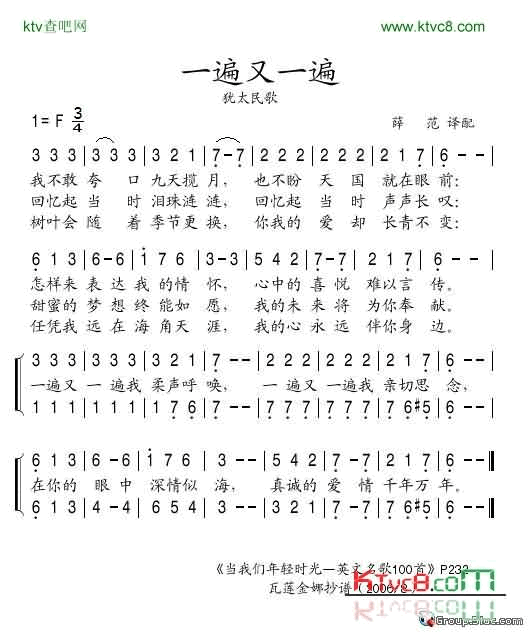 ktv查吧网 www.ktvc8.com
一遍又一遍
犹太民歌
1= F 3/4 薛 范 译配
3 3 3 | 3 3 3 | 3 2 1 | 7 - 7 | 2 2 2 | 2 2 2 | 2 1 7 | 6 - - |
我不敢 夸 口 九天揽 月, 也不盼 天 国 就在眼 前:
回忆起 当 时 泪珠涟 涟, 回忆起 当 时 声声长 叹:
树叶会 随 着 季节更 换, 你我的 爱 却 长青不 变:
6 1 3 | 6 - 6 | 1 7 6 | 3 - 3 | 5 4 2 | 7 - 7 | 2 1 7 | 6 - - |
怎样来 表 达 我的情 怀, 心中的 喜 悦 难以言 传。
甜蜜的 梦 想 终能如 愿, 我的未 来 将 为你奉 献。
任凭我 远 在 海角天 涯, 我的心 永 远 伴你身 边。
3 3 3 | 3 3 3 | 3 2 1 | 7 - - | 2 2 2 | 2 2 2 | 2 1 7 | 6 - - |
一遍又 一遍我 柔声呼 唤, 一遍 又 一遍我 亲切思 念,
1 1 1 | 1 1 1 | 1 7 6 | 7 - - | 7 7 7 | 7 7 7 | 7 6 #5 | 6 - - |
6 1 3 | 6 - 6 | 1 7 6 | 3 - - | 5 4 2 | 7 - 7 | 2 1 7 | 6 - - ‖
在你的 眼 中 深情似 海, 真诚的 爱 情 千年万 年。
6 1 3 | 6 - 6 | 1 7 6 | 3 - - | 5 4 2 | 7 - 7 | 7 6 #5 | 6 - - ‖
《当我们年轻时光—英文名歌100首》P232
瓦莲金娜抄谱（2006/8）
KTVC8.COM
Group.51ot.com